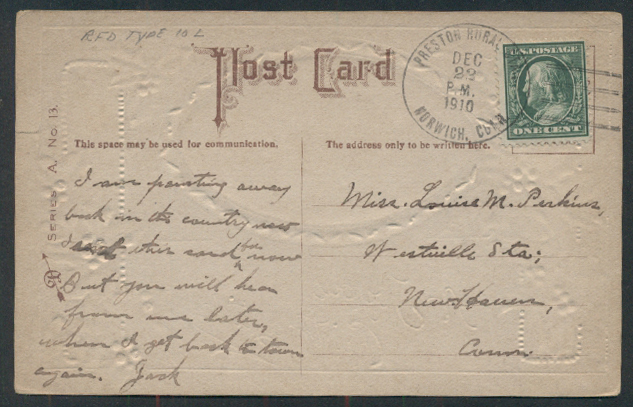 RFD TYPE 10 L
Post Card
PRESTON RURAL
DEC
22
P.M.
1910
NORWICH, CONN
U.S. POSTAGE
ONE CENT
SERIES A. No. 13.
This space may be used for communication.
The address only to be written here.
I am painting away
back in the country now
other now
But you will hear
from me later,
when I get back to town
again. Jack
Miss. Louise M. Perkins,
Westville Sta;
New Haven,
Conn.